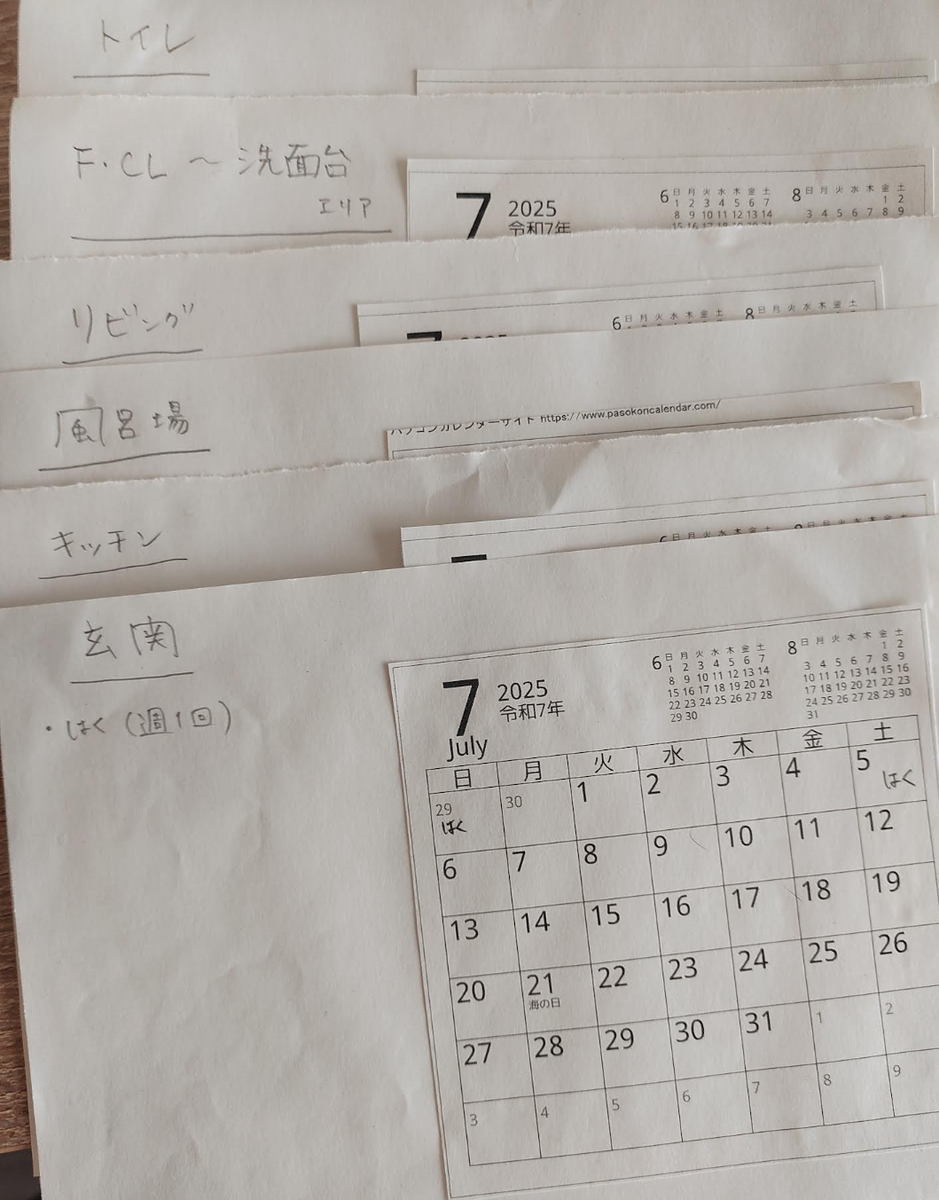 トイレ
F・CL ～ 洗面台
エリア
7 2025
令和7年
6 日 月 火 水 木 金 土
1 2 3 4 5 6 7
8 9 10 11 12 13 14
15 16 17 18 19 20 21
8 日 月 火 水 木 金 土
1 2
3 4 5 6 7 8 9
リビング
7 2025
6 日 月 火 水 木 金 土
8 日 月 火 水 木 金 土
風呂場
パソコンカレンダーサイト https://www.pasokoncalendar.com/
キッチン
玄関
・はく（週1回）
7 2025
令和7年
July
6 日 月 火 水 木 金 土
1 2 3 4 5 6 7
8 9 10 11 12 13 14
15 16 17 18 19 20 21
22 23 24 25 26 27 28
29 30
8 日 月 火 水 木 金 土
1 2
3 4 5 6 7 8 9
10 11 12 13 14 15 16
17 18 19 20 21 22 23
24 25 26 27 28 29 30
31
日 月 火 水 木 金 土
29 30 1 2 3 4 5
はく はく
6 7 8 9 10 11 12
13 14 15 16 17 18 19
20 21 22 23 24 25 26
海の日
27 28 29 30 31 1 2
3 4 5 6 7 8 9